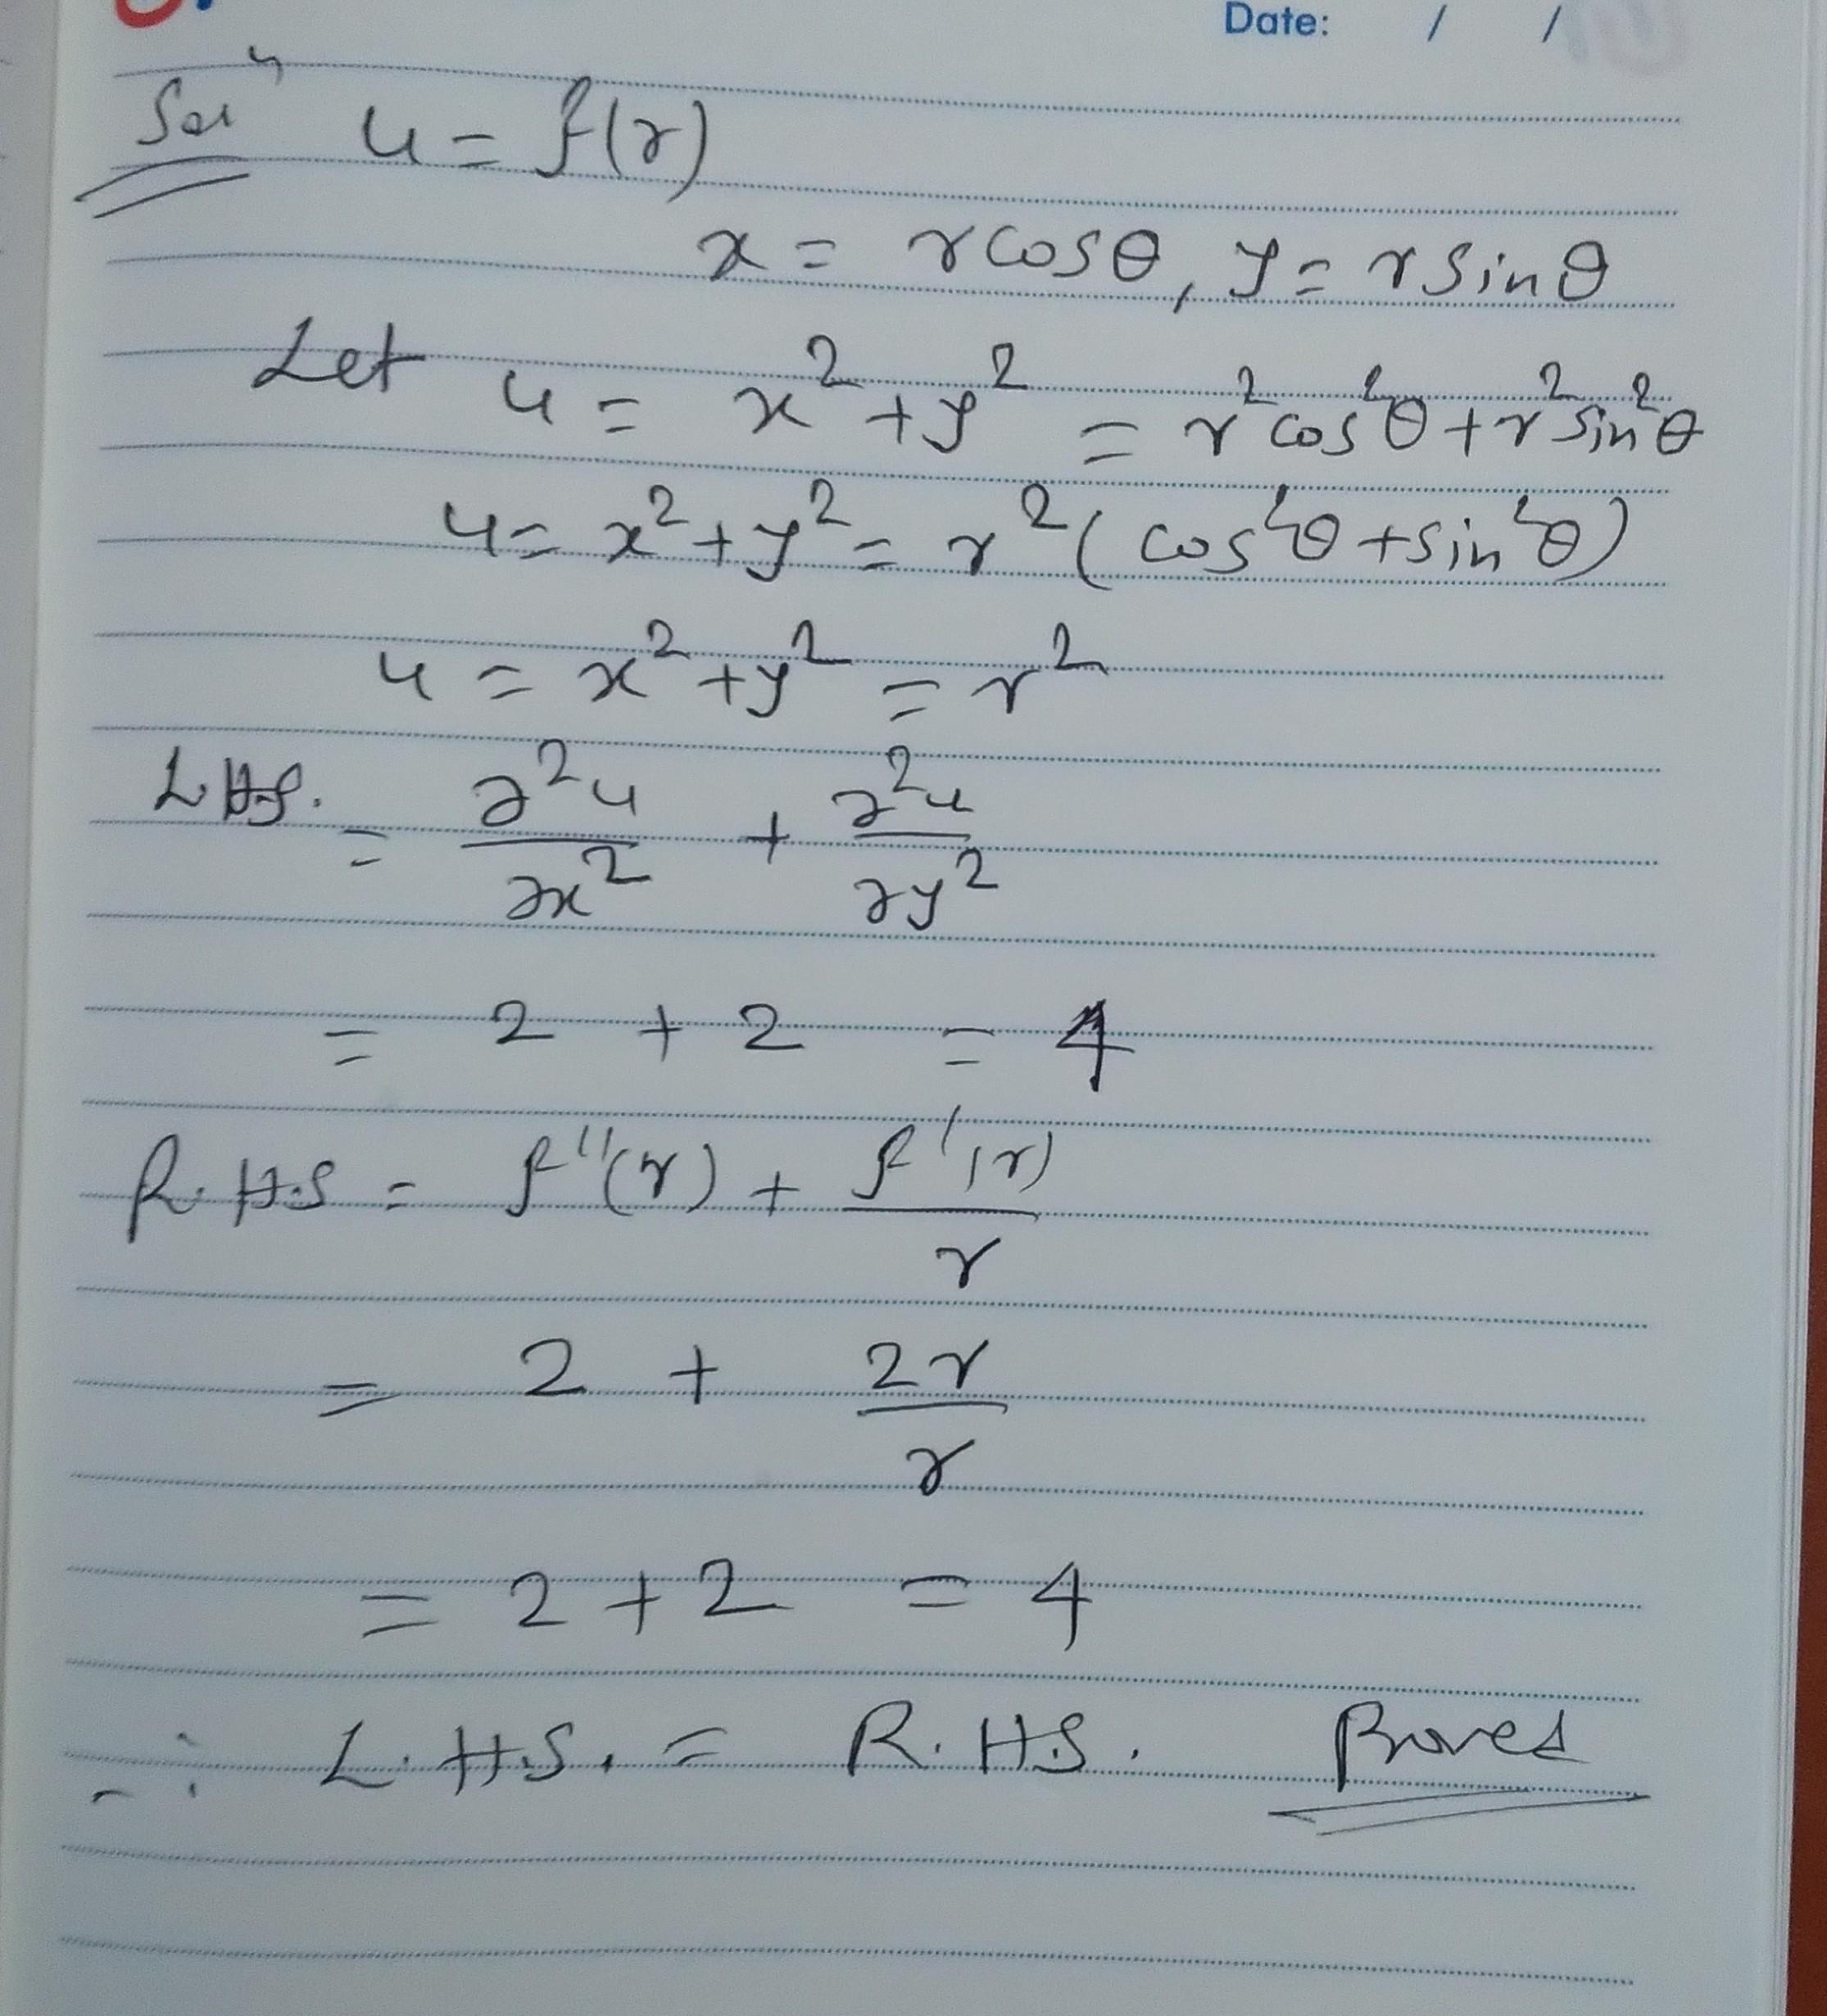 Date: / /
Solⁿ u = f(r)
x = r cosθ, y = r sinθ
Let u = x² + y² = r² cos²θ + r² sin²θ
u = x² + y² = r² ( cos²θ + sin²θ)
u = x² + y² = r²
L.H.S. = ∂²u/∂x² + ∂²u/∂y²
= 2 + 2 = 4
R.H.S = f''(r) + f'(r)/r
= 2 + 2r/r
= 2 + 2 = 4
∴ L.H.S. = R.H.S. Proved